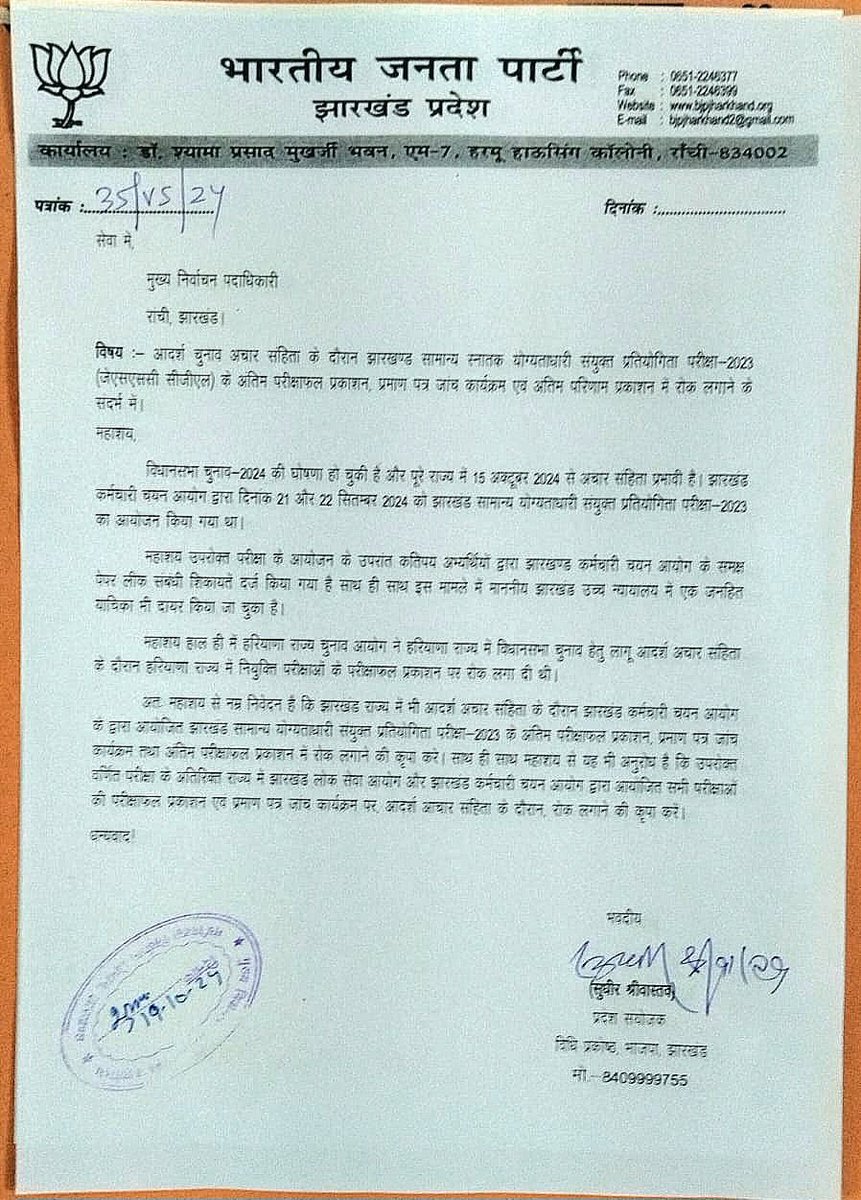 भारतीय जनता पार्टी
झारखंड प्रदेश
Phone : 0651-2246377
Fax : 0651-2246399
Website : www.bjpjharkhand.org
E-mail : bjpjharkhand2@gmail.com
कार्यालय : डॉ. श्यामा प्रसाद मुखर्जी भवन, एम-7, हरमू हाऊसिंग कॉलोनी, राँची-834002
पत्रांक :.... 35/VS/24
दिनांक :................................
सेवा में,
मुख्य निर्वाचन पदाधिकारी
रांची, झारखंड।
विषय :- आदर्श चुनाव अचार संहिता के दौरान झारखण्ड सामान्य स्नातक योग्यताधारी संयुक्त प्रतियोगिता परीक्षा-2023
(जेएसएससी सीजीएल) के अंतिम परीक्षाफल प्रकाशन, प्रमाण पत्र जांच कार्यक्रम एवं अंतिम परिणाम प्रकाशन में रोक लगाने के
संदर्भ में।
महाशय,
विधानसभा चुनाव-2024 की घोषणा हो चुकी है और पूरे राज्य में 15 अक्टूबर 2024 से अचार संहिता प्रभावी है। झारखंड
कर्मचारी चयन आयोग द्वारा दिनांक 21 और 22 सितम्बर 2024 को झारखंड सामान्य योग्यताधारी संयुक्त प्रतियोगिता परीक्षा-2023
का आयोजन किया गया था।
महाशय उपरोक्त परीक्षा के आयोजन के उपरांत कतिपय अभ्यर्थियों द्वारा झारखण्ड कर्मचारी चयन आयोग के समक्ष
पेपर लीक संबंधी शिकायतें दर्ज किया गया है साथ ही साथ इस मामले में माननीय झारखंड उच्च न्यायालय में एक जनहित
याचिका भी दायर किया जा चुका है।
महाशय हाल ही में हरियाणा राज्य चुनाव आयोग ने हरियाणा राज्य में विधानसभा चुनाव हेतु लागू आदर्श अचार संहिता
के दौरान हरियाणा राज्य में नियुक्ति परीक्षाओं के परीक्षाफल प्रकाशन पर रोक लगा दी थी।
अतः महाशय से नम्र निवेदन है कि झारखंड राज्य में भी आदर्श अचार संहिता के दौरान झारखंड कर्मचारी चयन आयोग
के द्वारा आयोजित झारखंड सामान्य योग्यताधारी संयुक्त प्रतियोगिता परीक्षा-2023 के अंतिम परीक्षाफल प्रकाशन, प्रमाण पत्र जांच
कार्यक्रम तथा अंतिम परीक्षाफल प्रकाशन में रोक लगाने की कृपा करें। साथ ही साथ महाशय से यह भी अनुरोध है कि उपरोक्त
वर्णित परीक्षा के अतिरिक्त राज्य में झारखंड लोक सेवा आयोग और झारखंड कर्मचारी चयन आयोग द्वारा आयोजित सभी परीक्षाओं
की परीक्षाफल प्रकाशन एवं प्रमाण पत्र जांच कार्यक्रम पर, आदर्श आचार संहिता के दौरान, रोक लगाने की कृपा करें।
धन्यवाद!
भवदीय
(सुधीर श्रीवास्तव)
प्रदेश संयोजक
विधि प्रकोष्ठ, भाजपा, झारखंड
मो.-8409999755
19-10-24